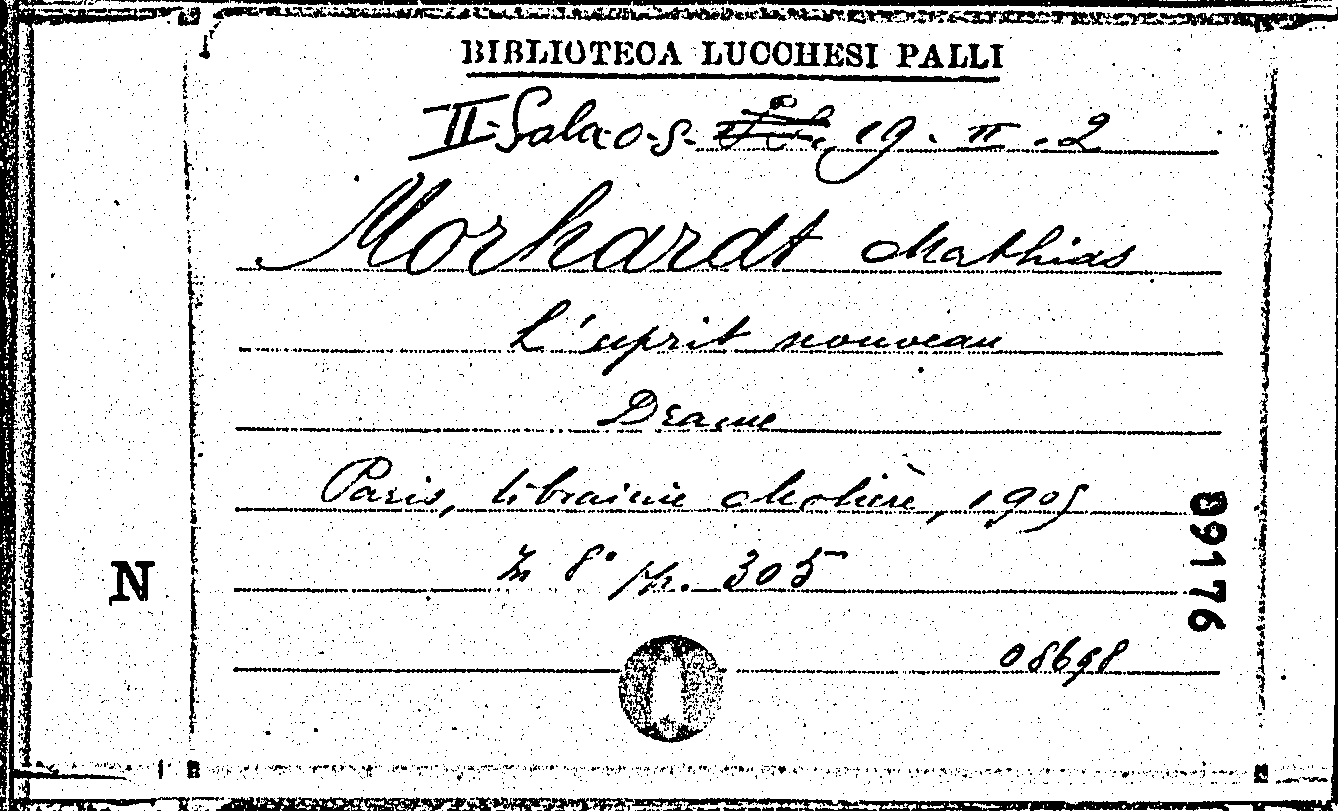 BIBLIOTECA LUCCHESI PALLI
II-Sala o-s. 19. II. 2
Morhardt Mathias
L'esprit nouveau
Drame
Paris, librairie Molière, 1905
In 8° pp. 305
N
89176
08698